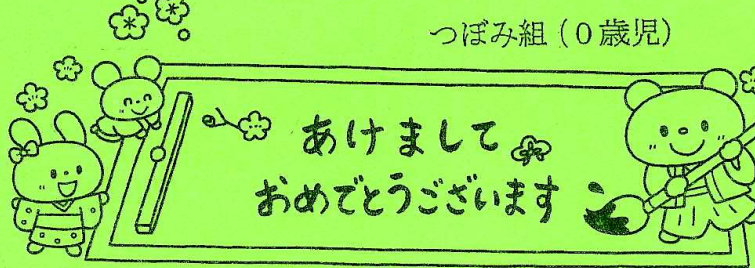 つぼみ組(0歳児)
あけまして
おめでとうございます